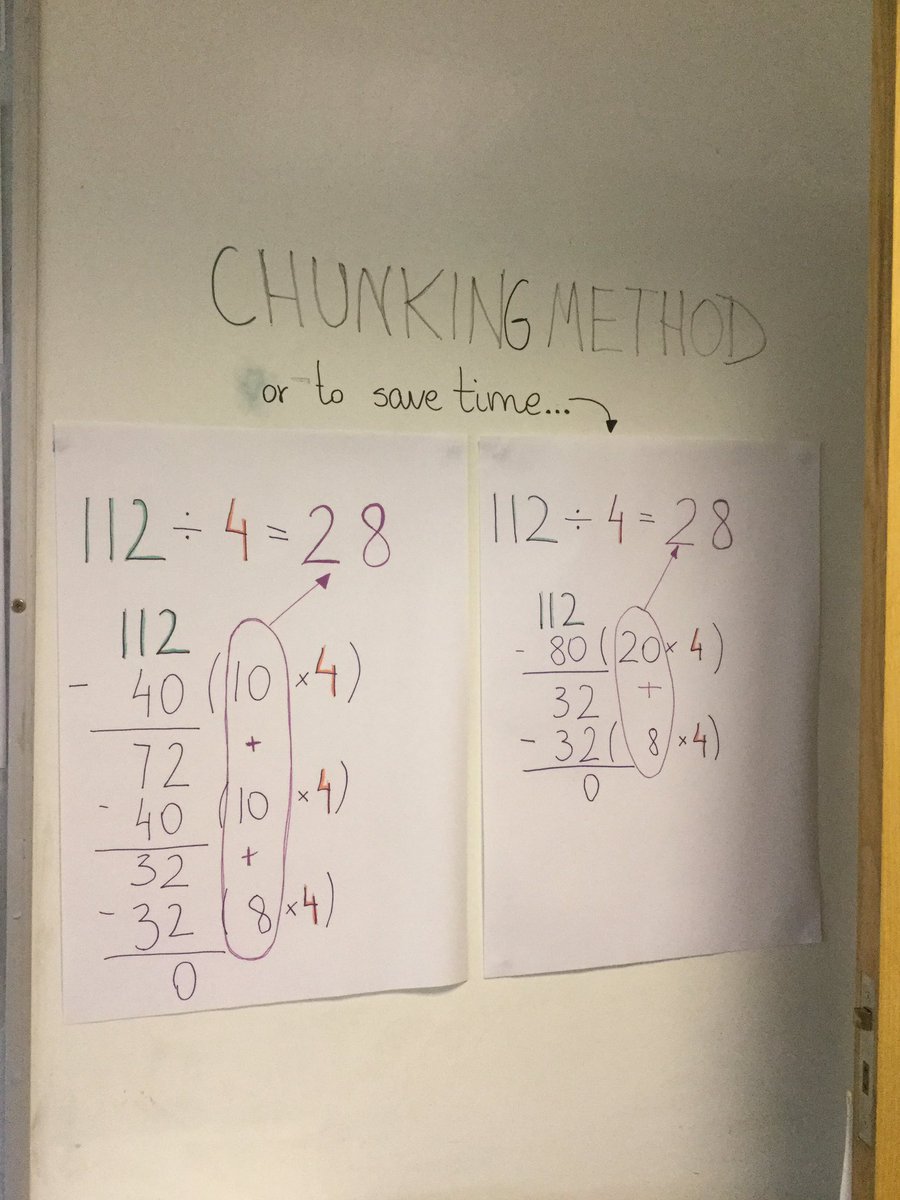 CHUNKING METHOD
or to save time...
112 ÷ 4 = 28
112
- 40 (10 × 4)
+
72
- 40 (10 × 4)
+
32
- 32 ( 8 × 4)
0
112 ÷ 4 = 28
112
- 80 (20 × 4)
32 +
- 32 ( 8 × 4)
0